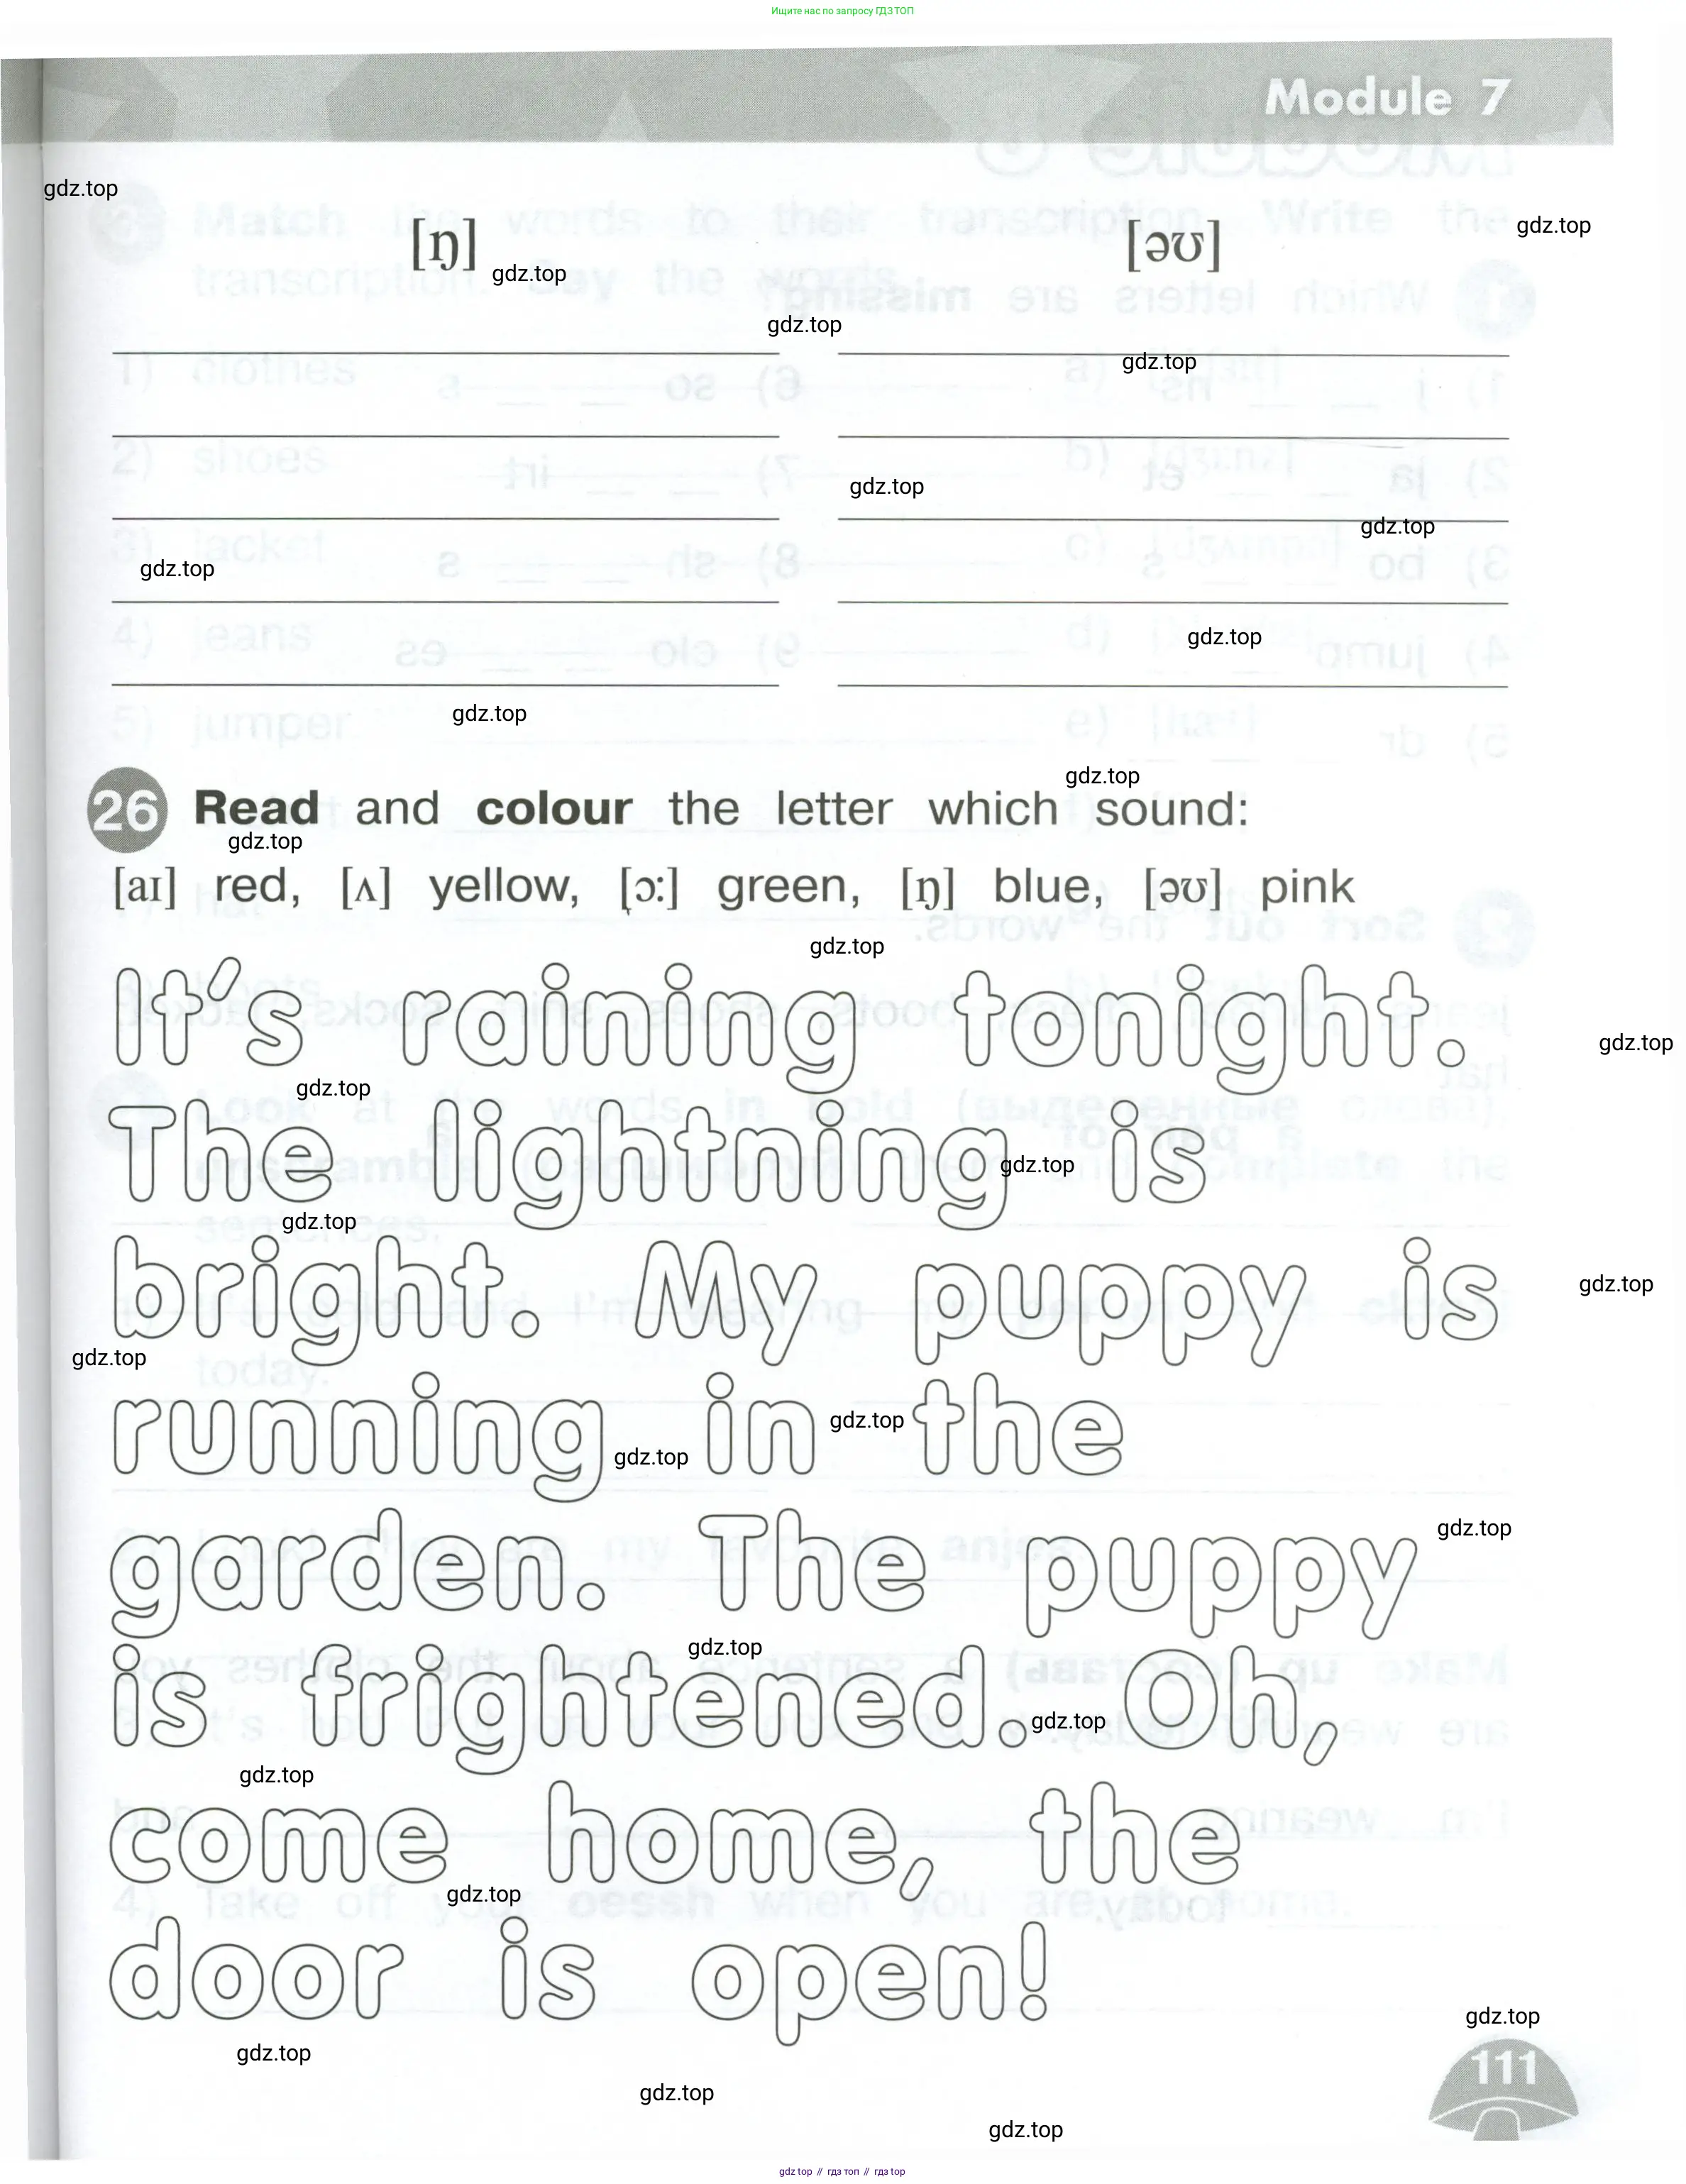 Ищите нас по запросу ГДЗ ТОП
Module 7
gdz.top
gdz.top
[ŋ] [əʊ]
gdz.top
gdz.top
gdz.top
gdz.top
gdz.top
gdz.top
gdz.top
gdz.top
gdz.top
26 Read and colour the letter which sound:
gdz.top
[aɪ] red, [ʌ] yellow, [ɔ:] green, [ŋ] blue, [əʊ] pink
gdz.top
It's raining tonight.
gdz.top
gdz.top
The lightning is
gdz.top
gdz.top
bright. My puppy is
gdz.top
gdz.top
running in the
gdz.top
gdz.top
garden. The puppy
gdz.top
gdz.top
is frightened. Oh,
gdz.top
gdz.top
come home, the
gdz.top
door is open!
gdz.top
gdz.top
111
gdz.top
gdz.top
gdz top // гдз топ // gdz top